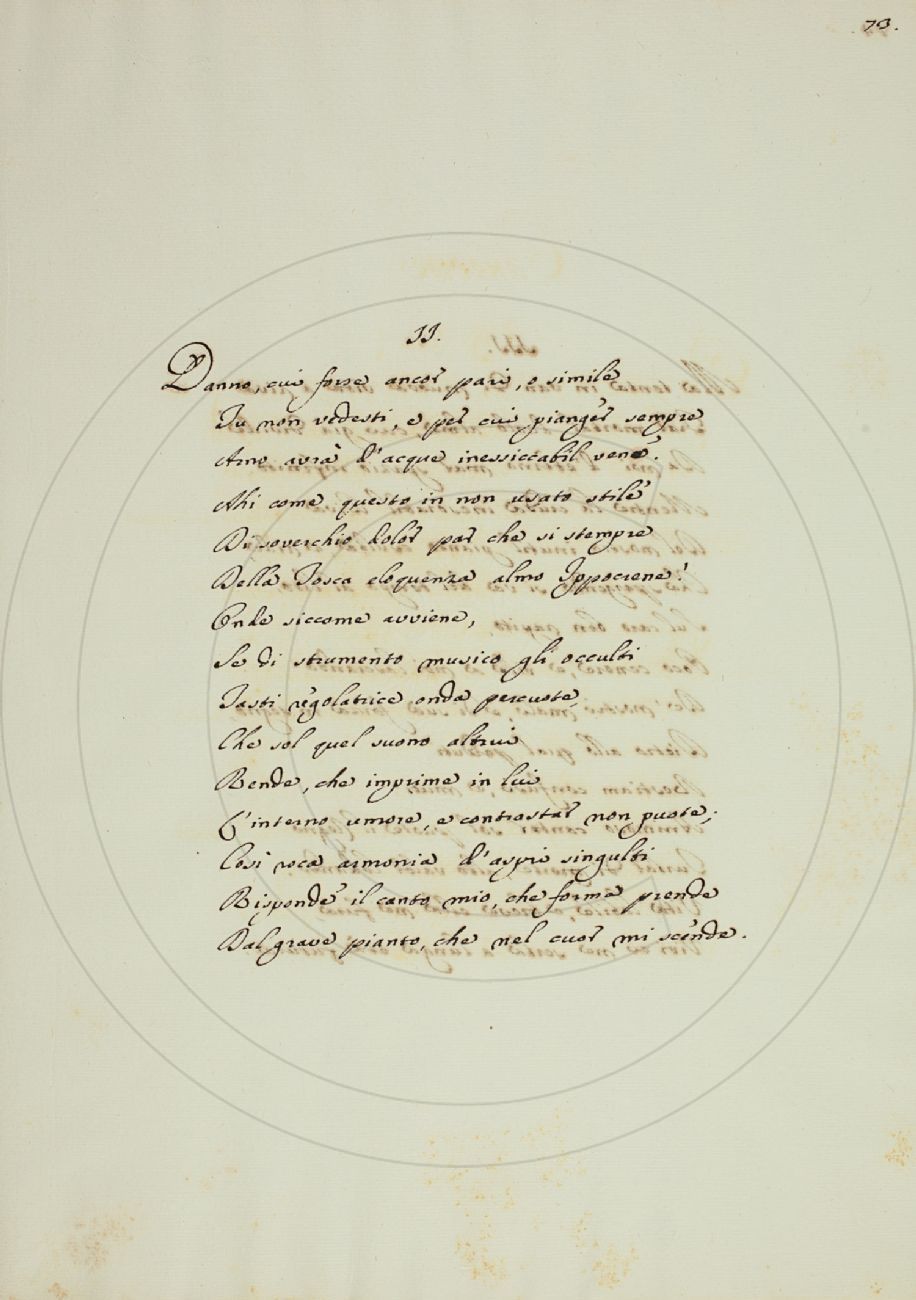 73.
II.
Danno, cui forse ancor pari, o simile
Tu non vedesti, e per cui pianger sempre
Arno avrà d'acque inessiccabil vene.
Ahi come questo in non usato stile
Di soverchio dolor par che si stempre
Della Tosca eloquenza almo Ippocrene!
Onde siccome avviene,
Se di strumento musico gli occulti
Tasti regolatrice onda percuote,
Che sol quel suono altrui
Rende, che imprime in lui
L'interno umore, e contrastar non puote;
Così roca armonia d'aspri singulti
Risponde il canto mio, che forma prende
Dal grave pianto, che nel cuor mi scende.